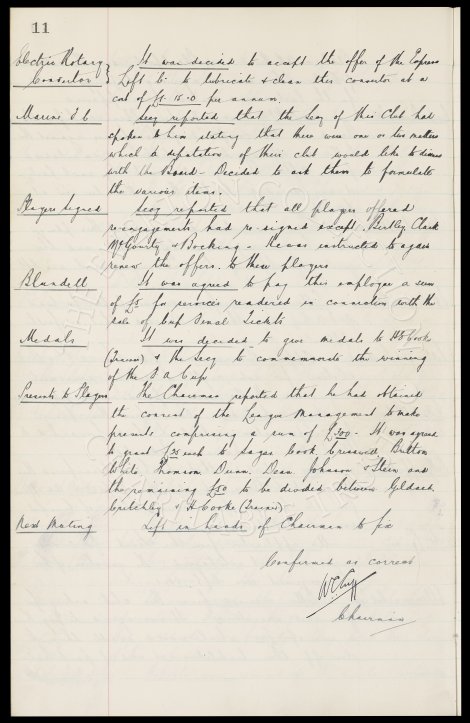 11
Electric Rotary It was decided to accept the offer of the Express
Convertor Lift Co. to lubricate & clean this convertor at a
cost of £7-15-0 per annum.
Marine F C Secy reported that the Secy of this Club had
spoken to him stating that there were one or two matters
which a deputation of their club would like to discuss
with the Board - Decided to ask them to formulate
the various items.
Players Signed Secy reported that all players offered
re-engagements had re-signed except. Bentley Clark
McGourty & Bocking. He was instructed to again
renew the offers to these players
Blundell It was agreed to pay this employee a sum
of £5 for services rendered in connection with the
sale of Cup Final Tickets
Medals It was decided to give medals to H E Cooke
(Trainer) & the Secy to commemorate the winning
of the F A Cup
Presents to Players The Chairman reported that he had obtained
the consent of the League Management to make
presents comprising a sum of £300 - It was agreed
to grant £25 each to Sagar Cook Cresswell Britton
White Thomson Dunn. Dean Johnson & Stein and
the remaining £50 to be divided between Geldard
Critchley & H Cooke (Trainer)
Next Meeting Left in hands of Chairman to fix
Confirmed as correct
W C Cuff
Chairman